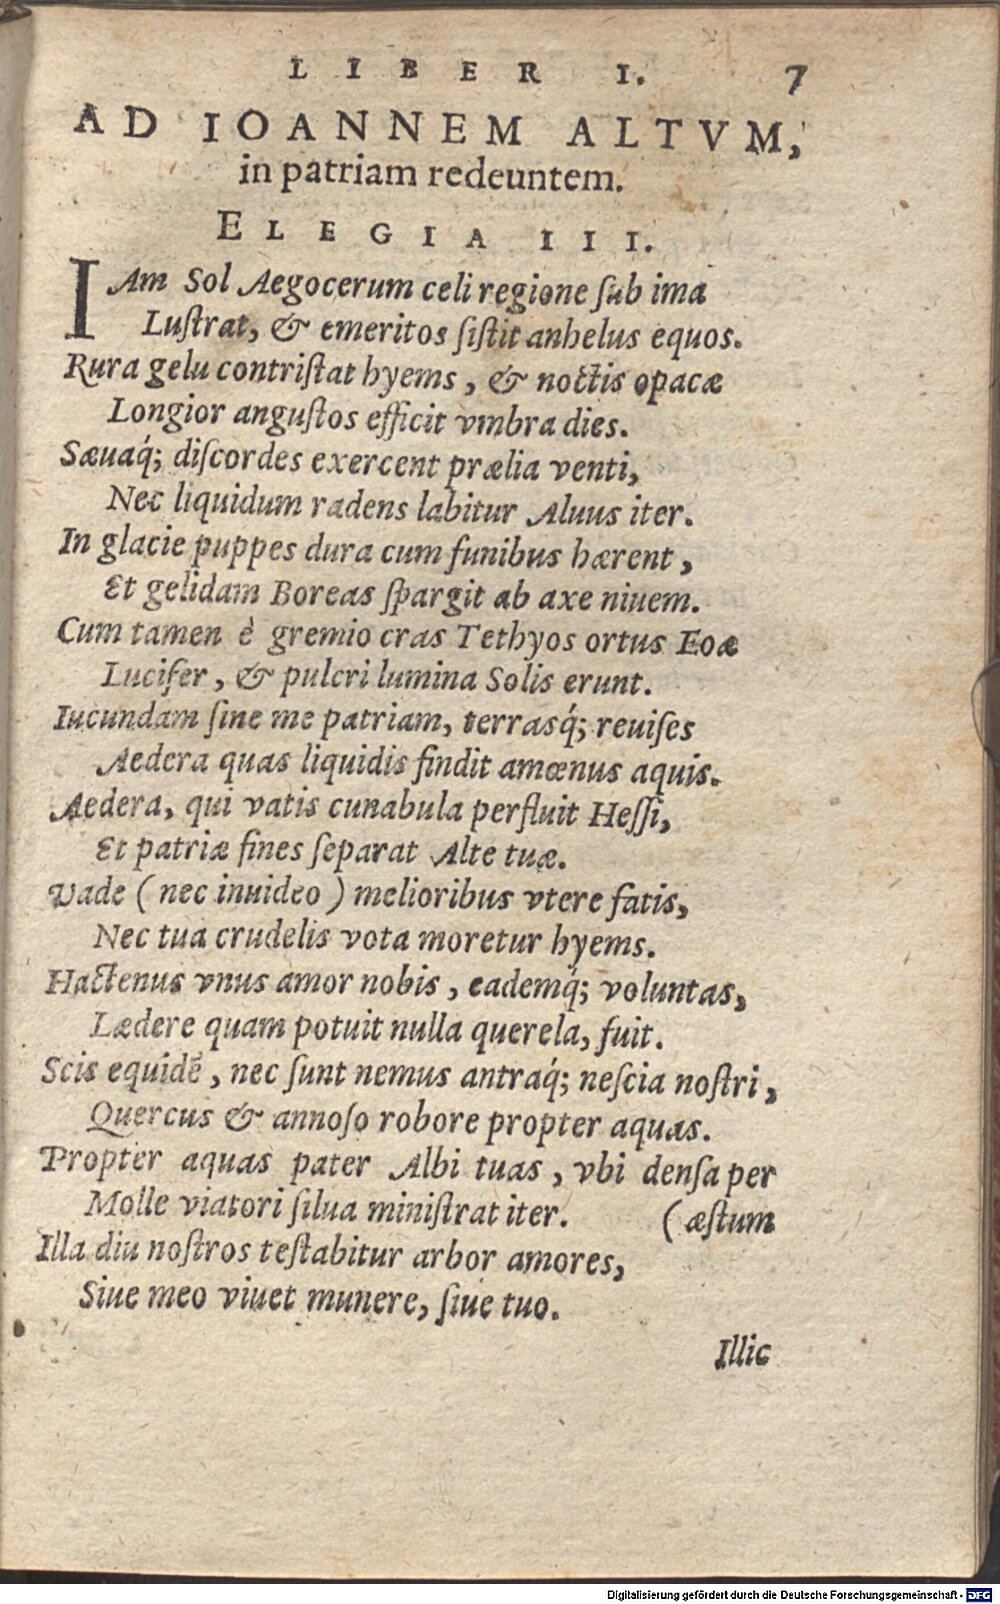 LIBER I. 7
AD IOANNEM ALTVM,
in patriam redeuntem.
ELEGIA III.
IAm Sol Aegocerum celi regione ſub ima
Luſtrat, & emeritos ſiſtit anhelus equos.
Rura gelu contriſtat hyems, & noctis opacæ
Longior anguſtos efficit vmbra dies.
Sæuaq́; diſcordes exercent prælia venti,
Nec liquidum radens labitur Aluus iter.
In glacie puppes dura cum funibus hærent,
Et gelidam Boreas ſpargit ab axe niuem.
Cum tamen è gremio cras Tethyos ortus Eoæ
Lucifer, & pulcri lumina Solis erunt.
Iucundam ſine me patriam, terrasq́; reuiſes
Aedera quas liquidis findit amœnus aquis.
Aedera, qui vatis cunabula perfluit Heſſi,
Et patriæ fines ſeparat Alte tuæ.
Vade (nec inuideo) melioribus vtere fatis,
Nec tua crudelis vota moretur hyems.
Hactenus vnus amor nobis, eademq́; voluntas,
Lædere quam potuit nulla querela, fuit.
Scis equidē, nec ſunt nemus antraq́; neſcia noſtri,
Quercus & annoſo robore propter aquas.
Propter aquas pater Albi tuas, vbi denſa per
Molle viatori ſilua miniſtrat iter. (æſtum
Illa diu noſtros teſtabitur arbor amores,
Siue meo viuet munere, ſiue tuo.
Illic
Digitalisierung gefördert durch die Deutsche Forschungsgemeinschaft - DFG